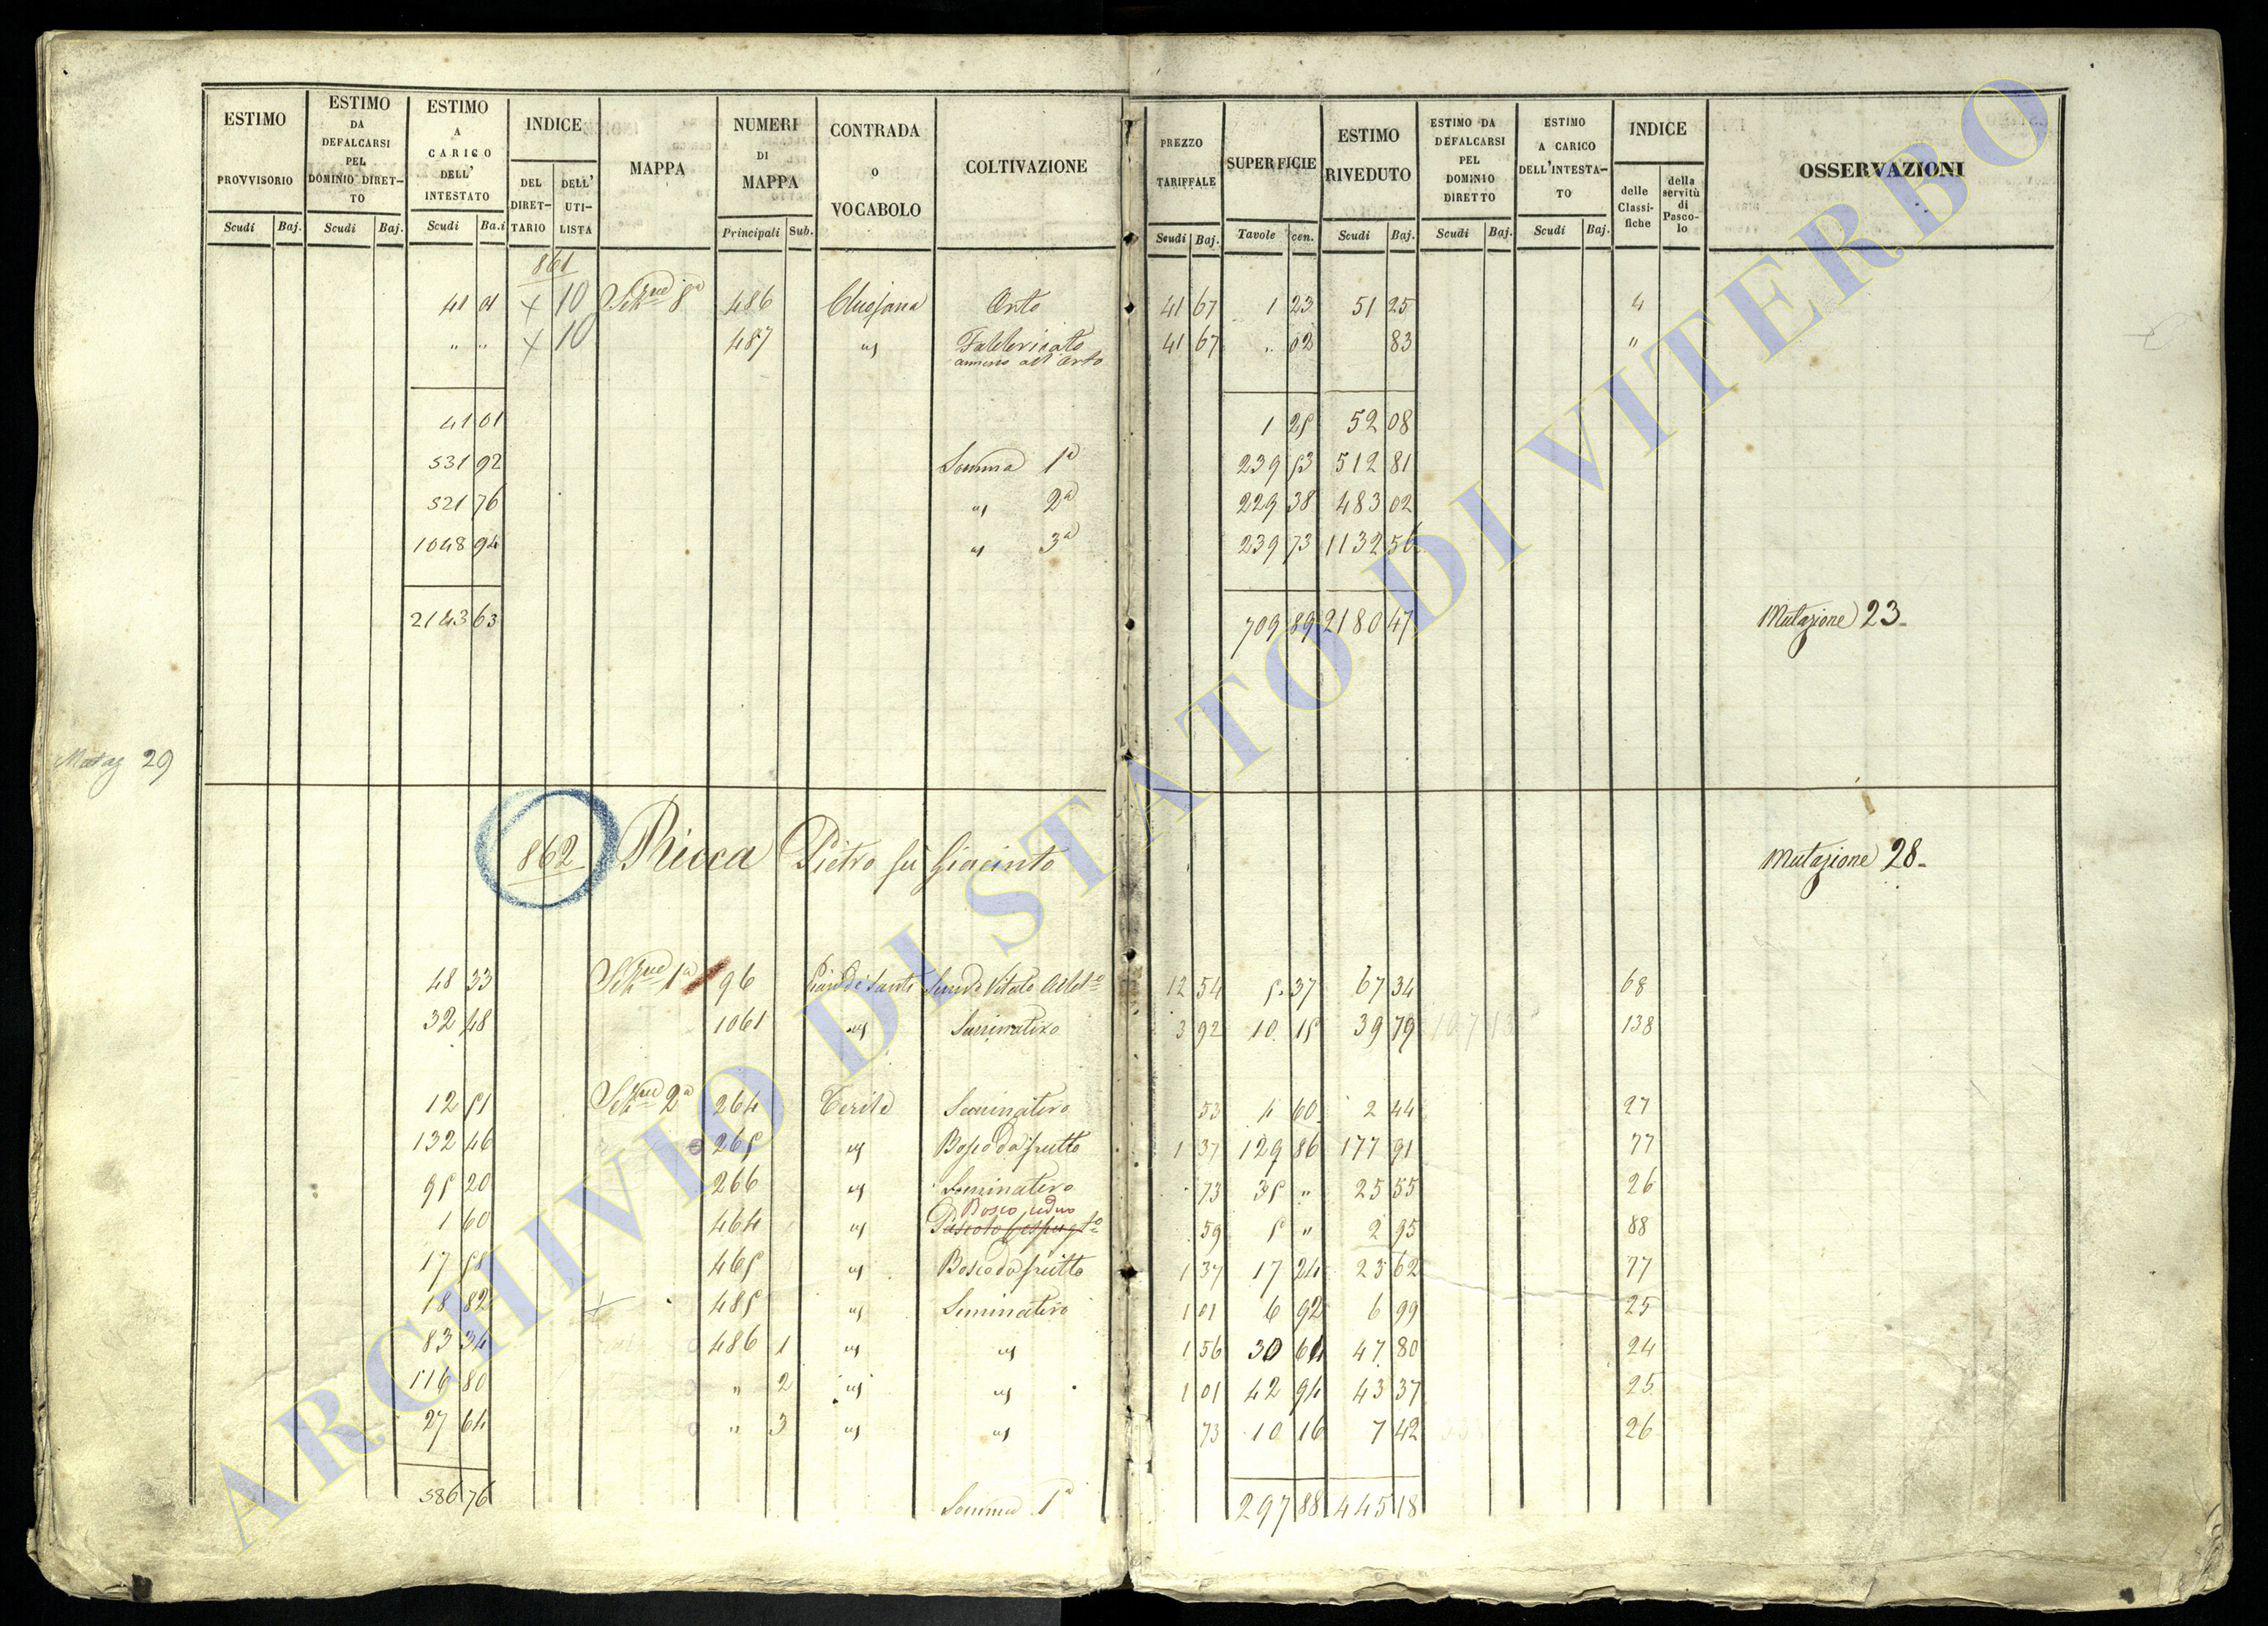 ESTIMO PROVVISORIO Scudi Baj.
ESTIMO DA DEFALCARSI PEL DOMINIO DIRET-TO Scudi Baj.
ESTIMO A CARICO DELL' INTESTATO Scudi Ba.i
INDICE DEL DIRET-TARIO DELL' UTI-LISTA
MAPPA
NUMERI DI MAPPA Principali Sub.
CONTRADA o VOCABOLO
COLTIVAZIONE
PREZZO TARIFFALE Scudi Baj.
SUPERFICIE Tavole cen.
ESTIMO RIVEDUTO Scudi Baj.
ESTIMO DA DEFALCARSI PEL DOMINIO DIRETTO Scudi Baj.
ESTIMO A CARICO DELL'INTESTA-TO Scudi Baj.
INDICE delle Classi-fiche della servitù di Pasco-lo
OSSERVAZIONI
861
41 01 + 10 8a 486 Orto 41 67 1 23 51 25 4
" " + 10 487 " Fabbricato annesso all'orto 41 67 .. 02 83 "
41 01 1 25 52 08
531 92 Somma 1a 239 53 512 81
521 76 " 2a 229 38 483 02
1048 94 " 3a 239 73 1132 56
2143 63 709 89 2180 47 Mutazione 23.
Mutaz 29
862 Ricca Pietro fù Giacinto Mutazione 28.
48 33 1a 96 12 54 5. 37 67 34 68
32 48 1061 " Seminativo 3 92 10 15 39 79 138
12 51 2a 264 Seminativo 53 4 60 2 44 27
132 46 265 " Bosco da frutto 1 37 129 86 177 91 77
95 20 266 " Seminativo 73 35 " 25 55 26
Bosco ceduo
1 60 464 " 59 5 " 2 95 88
17 58 465 " Bosco da frutto 1 37 17 24 23 62 77
18 82 + 485 " Seminativo 1 01 6 92 6 99 25
83 34 486 1 " " 1 56 30 64 47 80 24
116 80 " 2 " " 1 01 42 94 43 37 25
27 64 " 3 " " 73 10 16 7 42 26
586 76 Somma 1a 297 88 445 18
ARCHIVIO DI STATO DI VITERBO